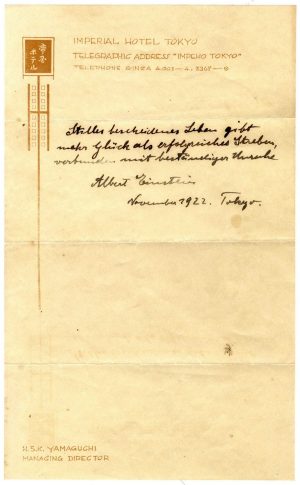 帝国
ホテル
IMPERIAL HOTEL TOKYO
TELEGRAPHIC ADDRESS "IMPEHO TOKYO"
TELEPHONE GINZA
Stilles bescheidenes Leben gibt
mehr Glück als erfolgreiches Streben,
verbunden mit beständiger Unruhe.
Albert Einstein
November 1922. Tokyo.
H.S.K. YAMAGUCHI
MANAGING DIRECTOR